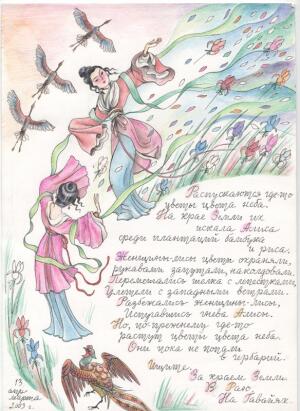 Распускаются где-то
цветы цвета неба.
На краю Земли их
искала Алиса
среди плантаций бамбука
и риса.
Женщины-лисы цветы охраняли,
рукавами запутали, наколдовали.
Перемешались шелка с лепестками,
Улетели с западными ветрами.
Разбежались женщины-лисы,
Испугавшись гнева Алисы.
Но, по-прежнему где-то
растут цветы цвета неба.
Они пока не попали
в гербарий.
Ищите.
За краем Земли.
В Раю.
На Гавайях.
13
марта
2003 г.